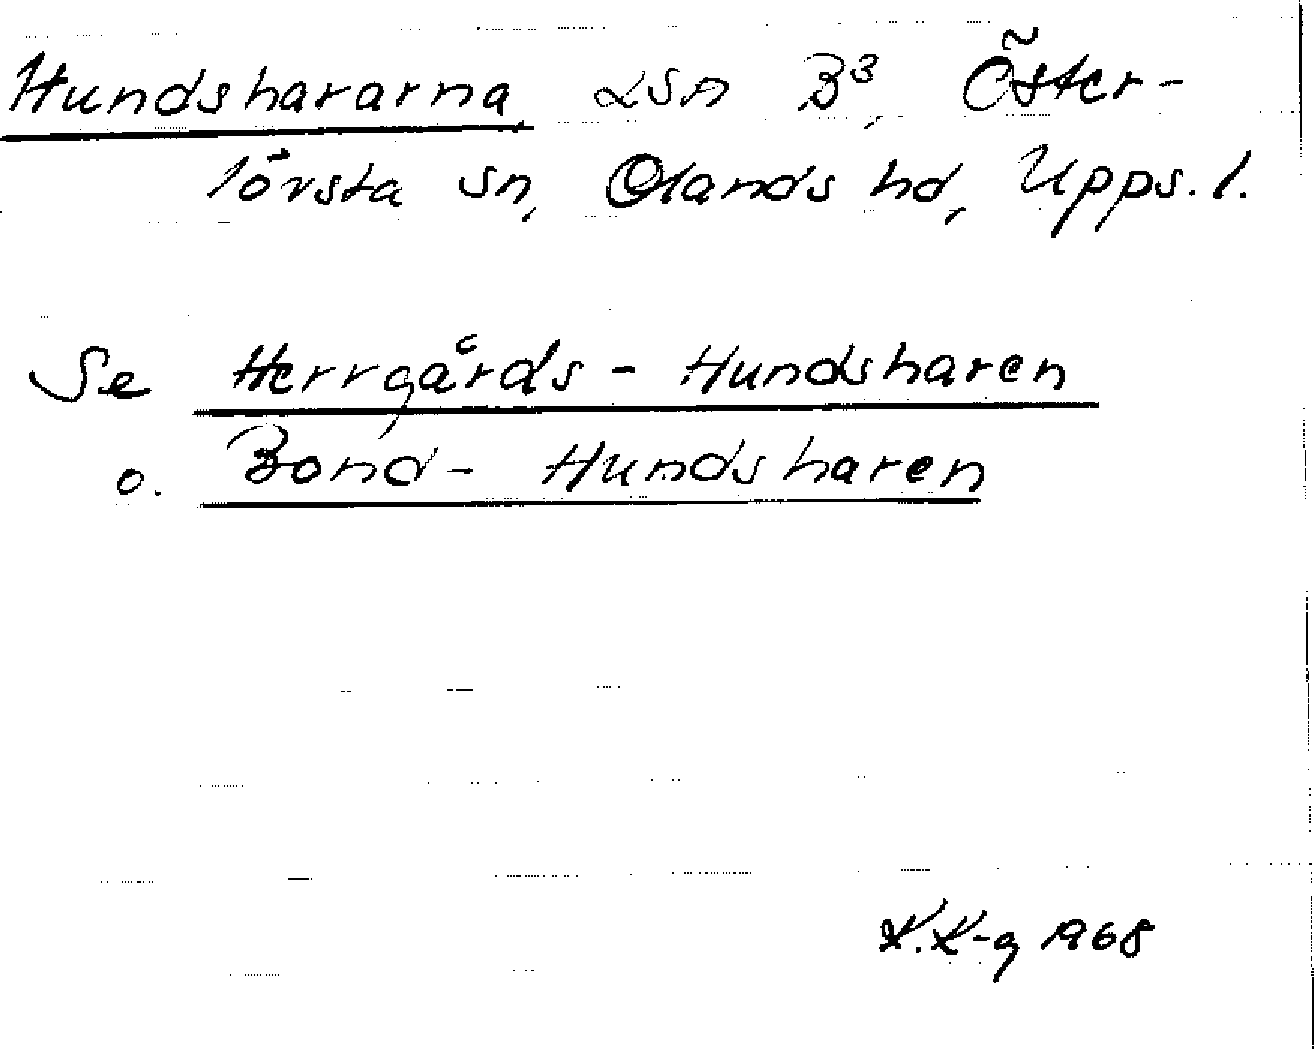 Hundshararna, LSn B3, Öster-
lövsta sn, Olands hd, Upps. l.
Se Herrgårds-Hundsharen
o. Bond-Hundsharen
K.K-g 1968